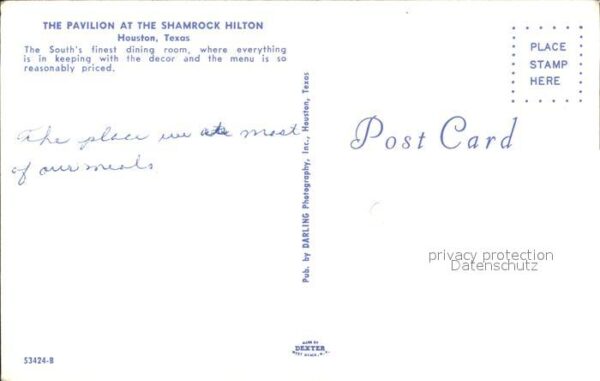 THE PAVILION AT THE SHAMROCK HILTON
Houston, Texas
The South's finest dining room, where everything
is in keeping with the decor and the menu is so
reasonably priced.
The place we ate most
of our meals
Pub. by DARLING Photography, Inc., Houston, Texas
PLACE
STAMP
HERE
Post Card
privacy protection
Datenschutz
MADE BY
DEXTER
WEST NYACK, N.Y.
53424-B